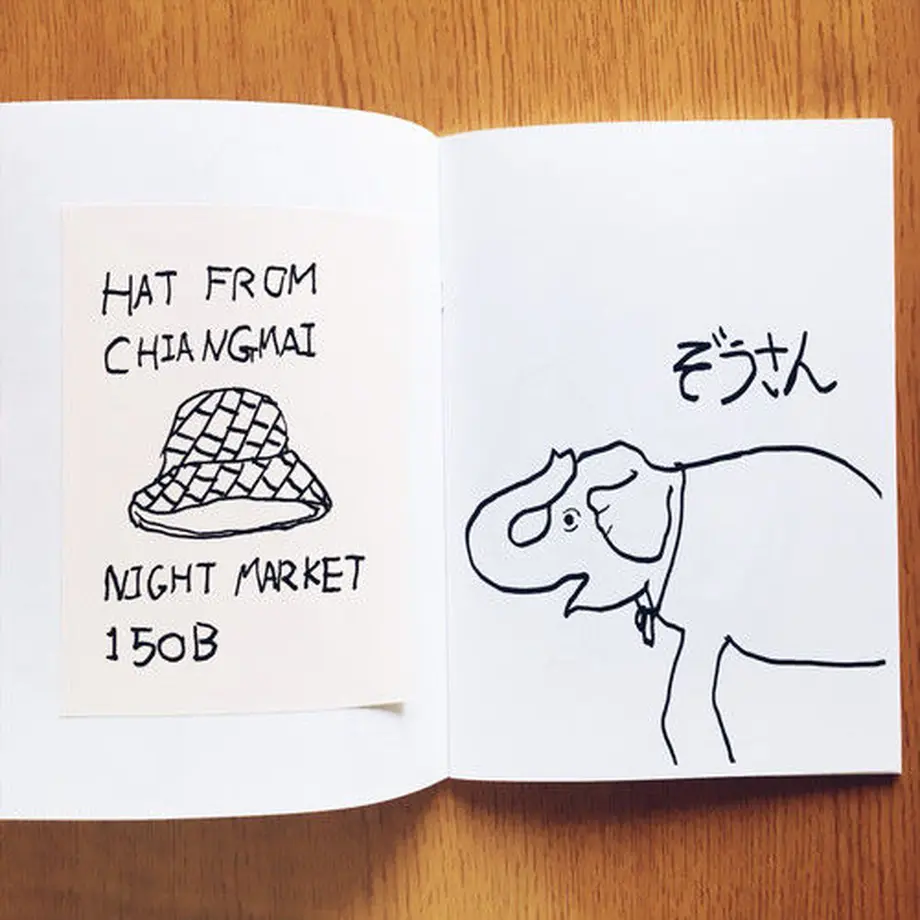 HAT FROM
CHIANGMAI
NIGHT MARKET
150B
ぞうさん